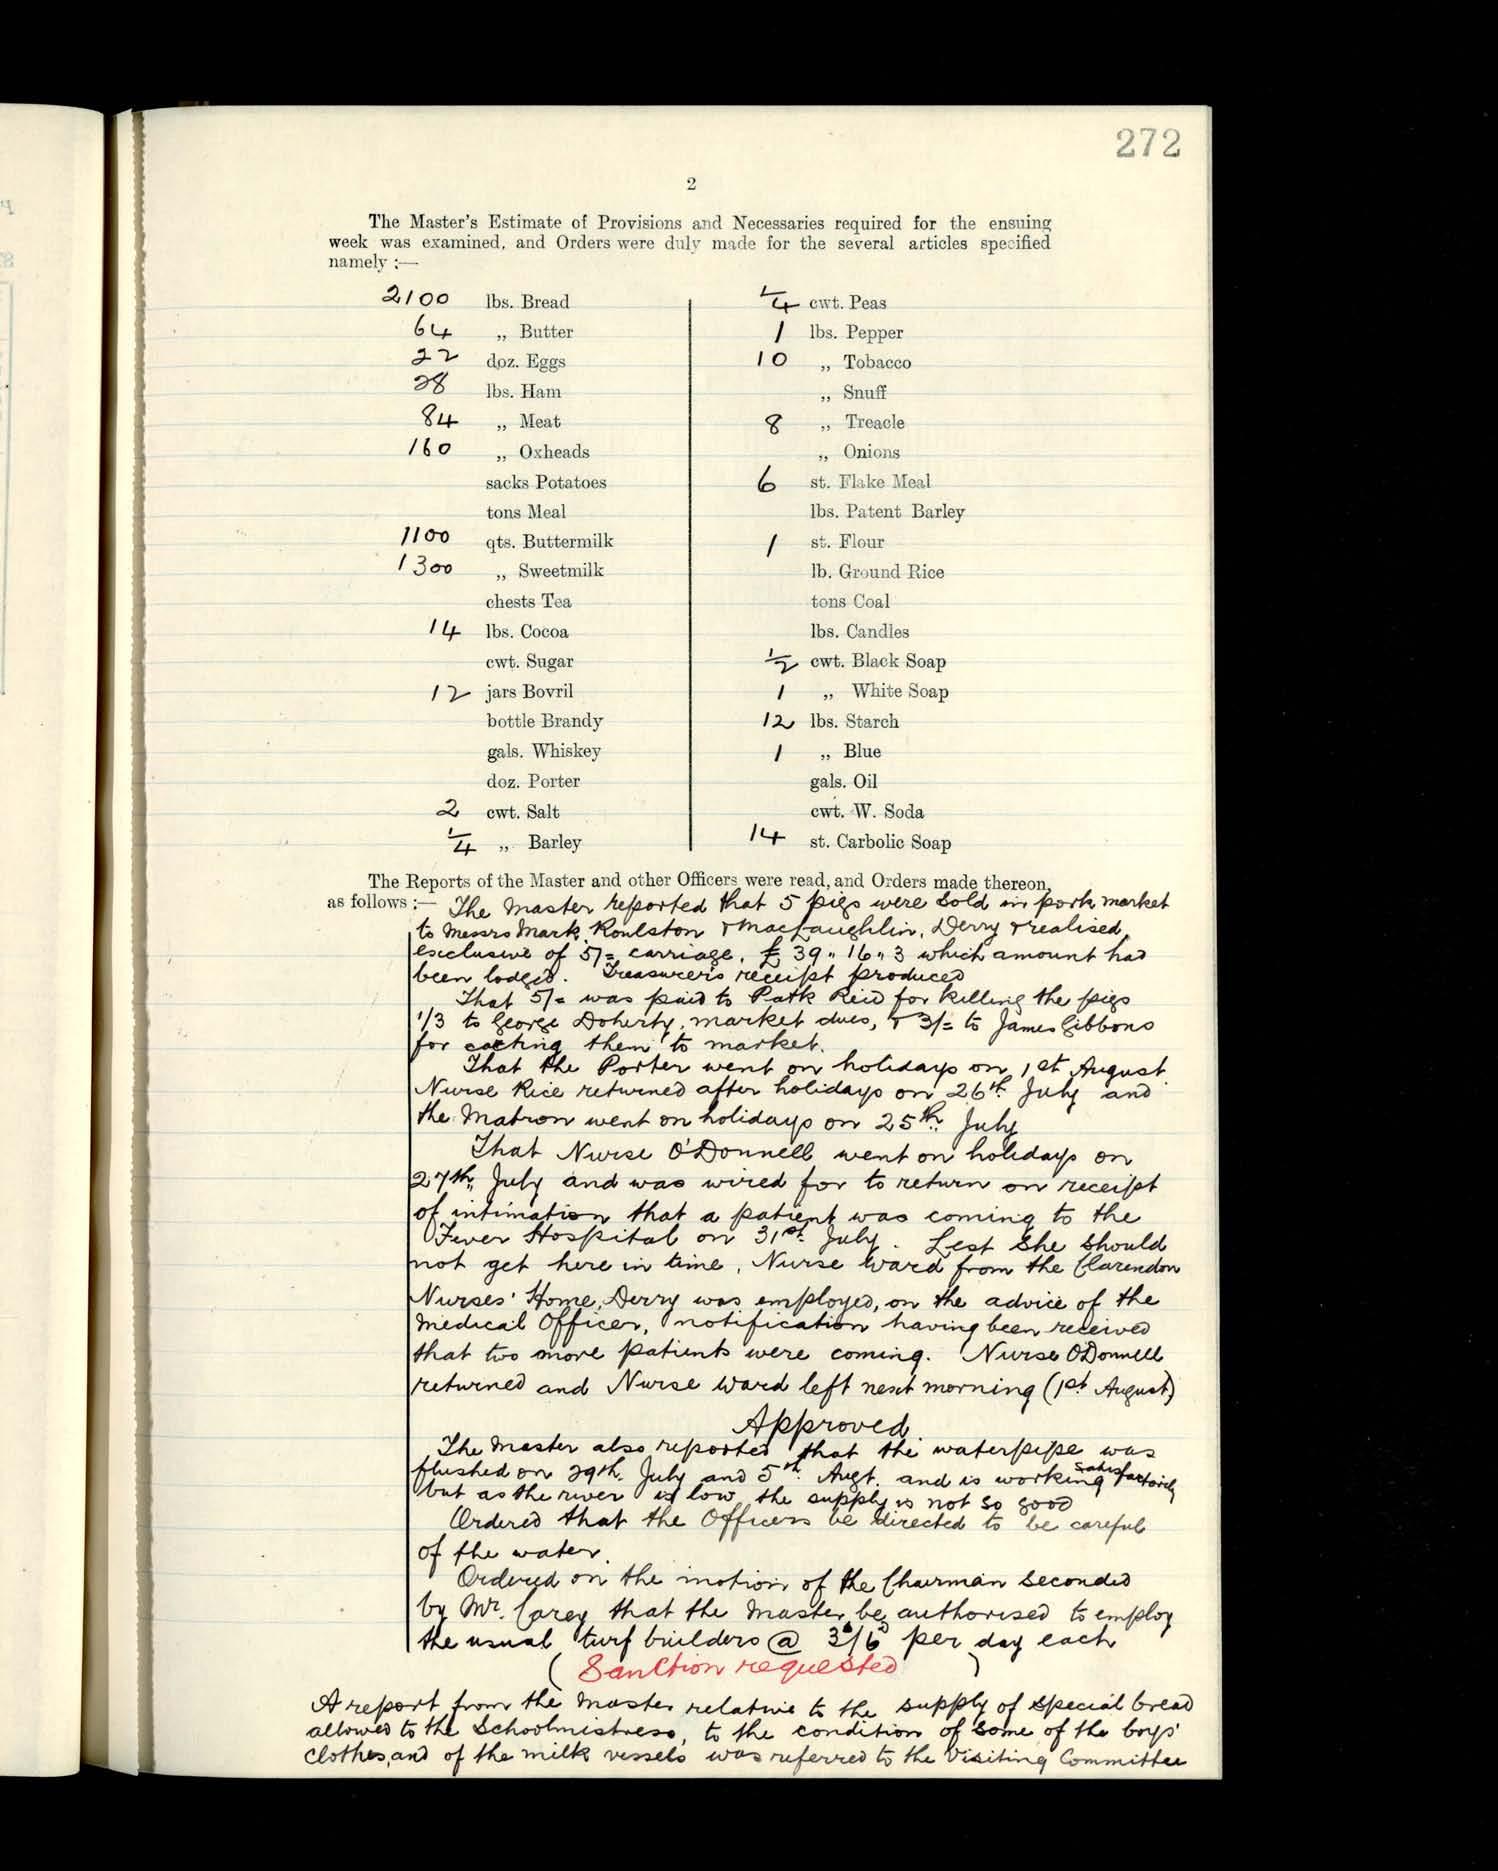 272
2
The Master's Estimate of Provisions and Necessaries required for the ensuing
week was examined, and Orders were duly made for the several articles specified
namely :—
2100 lbs. Bread
64 „ Butter
22 doz. Eggs
28 lbs. Ham
84 „ Meat
160 „ Oxheads
sacks Potatoes
tons Meal
1100 qts. Buttermilk
1300 „ Sweetmilk
chests Tea
14 lbs. Cocoa
cwt. Sugar
12 jars Bovril
bottle Brandy
gals. Whiskey
doz. Porter
2 cwt. Salt
1/4 „ Barley
1/4 cwt. Peas
1 lbs. Pepper
10 „ Tobacco
„ Snuff
8 „ Treacle
„ Onions
6 st. Flake Meal
lbs. Patent Barley
1 st. Flour
lb. Ground Rice
tons Coal
lbs. Candles
1/2 cwt. Black Soap
1 „ White Soap
12 lbs. Starch
1 „ Blue
gals. Oil
cwt. W. Soda
14 st. Carbolic Soap
The Reports of the Master and other Officers were read, and Orders made thereon,
as follows :— The Master reported that 5 pigs were sold in pork market
to Messrs Mark, Roulston & MacLaughlin, Derry & realised,
exclusive of 5/= carriage, £39 „ 16 „ 3 which amount had
been lodged. Treasurer's receipt produced
That 5/= was paid to Patk Reid for killing the pigs
1/3 to George Doherty, market dues, & 3/= to James Gibbons
for carting them to market.
That the Porter went on holidays on 1st August.
Nurse Rice returned after holidays on 26th July and
the Matron went on holidays on 25th July
That Nurse O'Donnell went on holidays on
27th July and was wired for to return on receipt
of intimation that a patient was coming to the
Fever Hospital on 31st July. Lest she should
not get here in time, Nurse Ward from the Clarendon
Nurses' Home, Derry was employed, on the advice of the
Medical Officer, notification having been received
that two more patients were coming. Nurse O'Donnell
returned and Nurse Ward left next morning (1st August)
Approved.
The Master also reported that the waterpipe was
flushed on 29th July and 5th Augt. and is working satisfactorily
but as the river is low the supply is not so good
Ordered that the Officers be directed to be careful
of the water.
Ordered on the motion of the Chairman seconded
by Mr. Carey that the Master be authorised to employ
the usual turf builders @ 3s/6d per day each
( Sanction requested )
A report from the Master relative to the supply of special bread
allowed to the Schoolmistress, to the condition of some of the boys'
clothes, and of the milk vessels was referred to the Visiting Committee